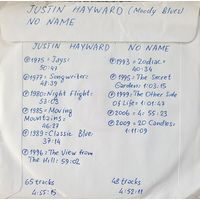 JUSTIN HAYWARD (Moody Blues)
NO NAME
JUSTIN HAYWARD NO NAME
① 1975 = Jays: 50:47
② 1977 = Songwriter: 48:39
③ 1980: Night Flight: 53:03
④ 1985 = Moving Mountains: 46:27
⑤ 1989 = Classic Blue: 37:14
⑥ 1996 = The View from The Hill: 59:02
65 tracks
4:55:15
① 1993 = Zodiac: 40:34
② 1995 = The Secret Garden: 1:03:15
③ 1999 = The Other Side Of Life: 1:01:47
④ 2006 = 4:55:23
⑤ 2009 = 20 Candles: 1:11:09
48 tracks
4:52:11